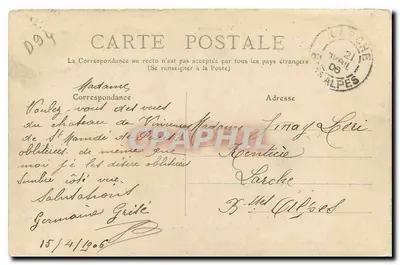 D94
CARTE POSTALE
La Correspondance au recto n'est pas acceptée par tous les pays étrangers
(Se renseigner à la Poste)
LARCHE
21
AVRIL
06
ALPES
Correspondance
Adresse
Madame
Voulez-vous des vues
du chateau de Vincennes
de St Mandé
oblitérées de même que
moi je les désire oblitérées
Timbre côté vue
Salutations
Germaine
15/4/1906
Madame
Rentière
Larche
Bses Alpes
CARTAPHILIA